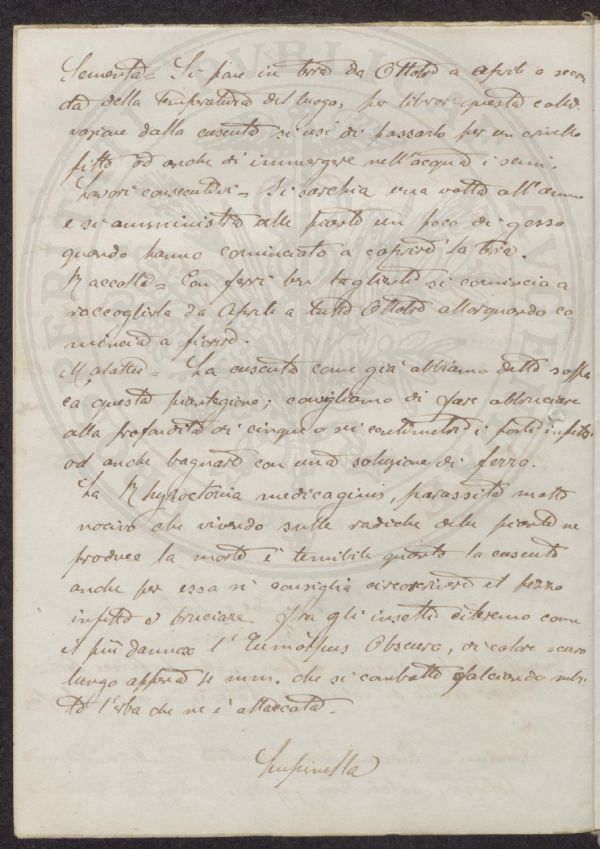 Sementa = Si pone in terra da Ottobre a Aprile a secon
da della temperatura del luogo, per liberar questa colti
vazione dalla cuscuta si usi di passarlo per un crivello
fitto od anche di immergere nell'acqua i semi.
Lavori consecutivi = Si sarchia una volta all'anno
e si amministra alle piante un poco di gesso
quando hanno cominciato a coprire la terra.
Raccolta = Con ferri ben taglienti si comincia a
raccoglierla da Aprile a tutto Ottobre allorquando co
mincia a fiorire.
Malattie = La cuscuta come già abbiamo detto soffo
ca questa piantagione; consigliamo di fare abbruciare
alla profondità di cinque o sei centimetri i posti infetti
od anche bagnare con una soluzione di ferro.
La Rhyzoctonia medicaginis, parassita molto
nocivo che vivendo sulle radiche delle piante ne
produce la morte è temibile quanto la cuscuta
anche per essa si consiglia circoscrivere il pezzo
infetto e bruciare. Fra gli insetti citeremo come
il più dannoso l'Eumolpus Obscuro, di colore scuro
lungo appena 4 mm. che si combatte falciando subi
to l'erba che ne è attaccata.
Lupinella